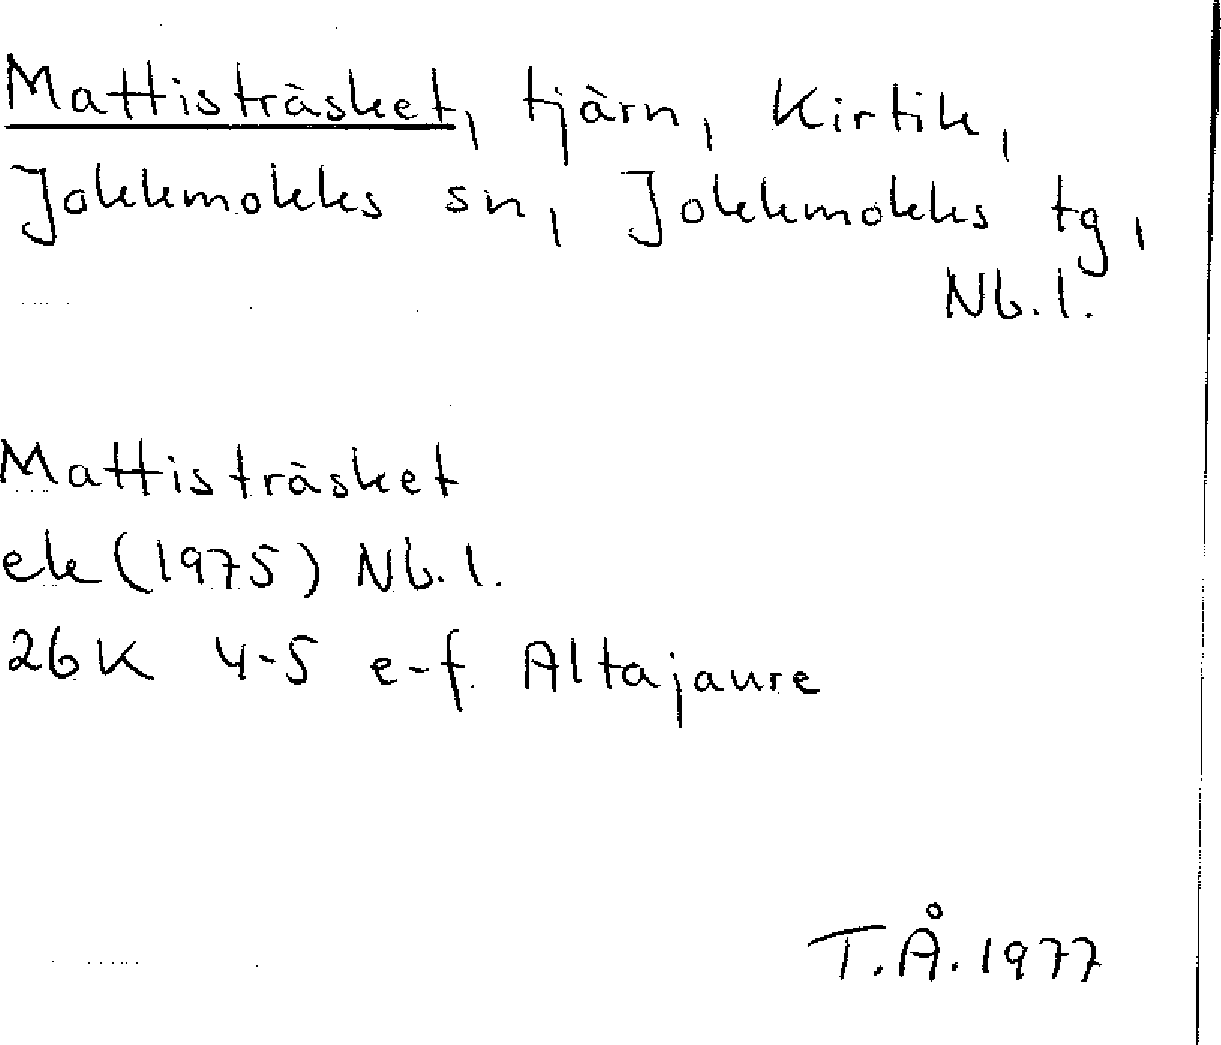 Mattisträsket, tjärn, Kirtik,
Jokkmokks sn, Jokkmokks tg,
Nb.l.
Mattisträsket
ek (1975) Nb.l.
26K 4-5 e-f Altajaure
T.Å. 1977